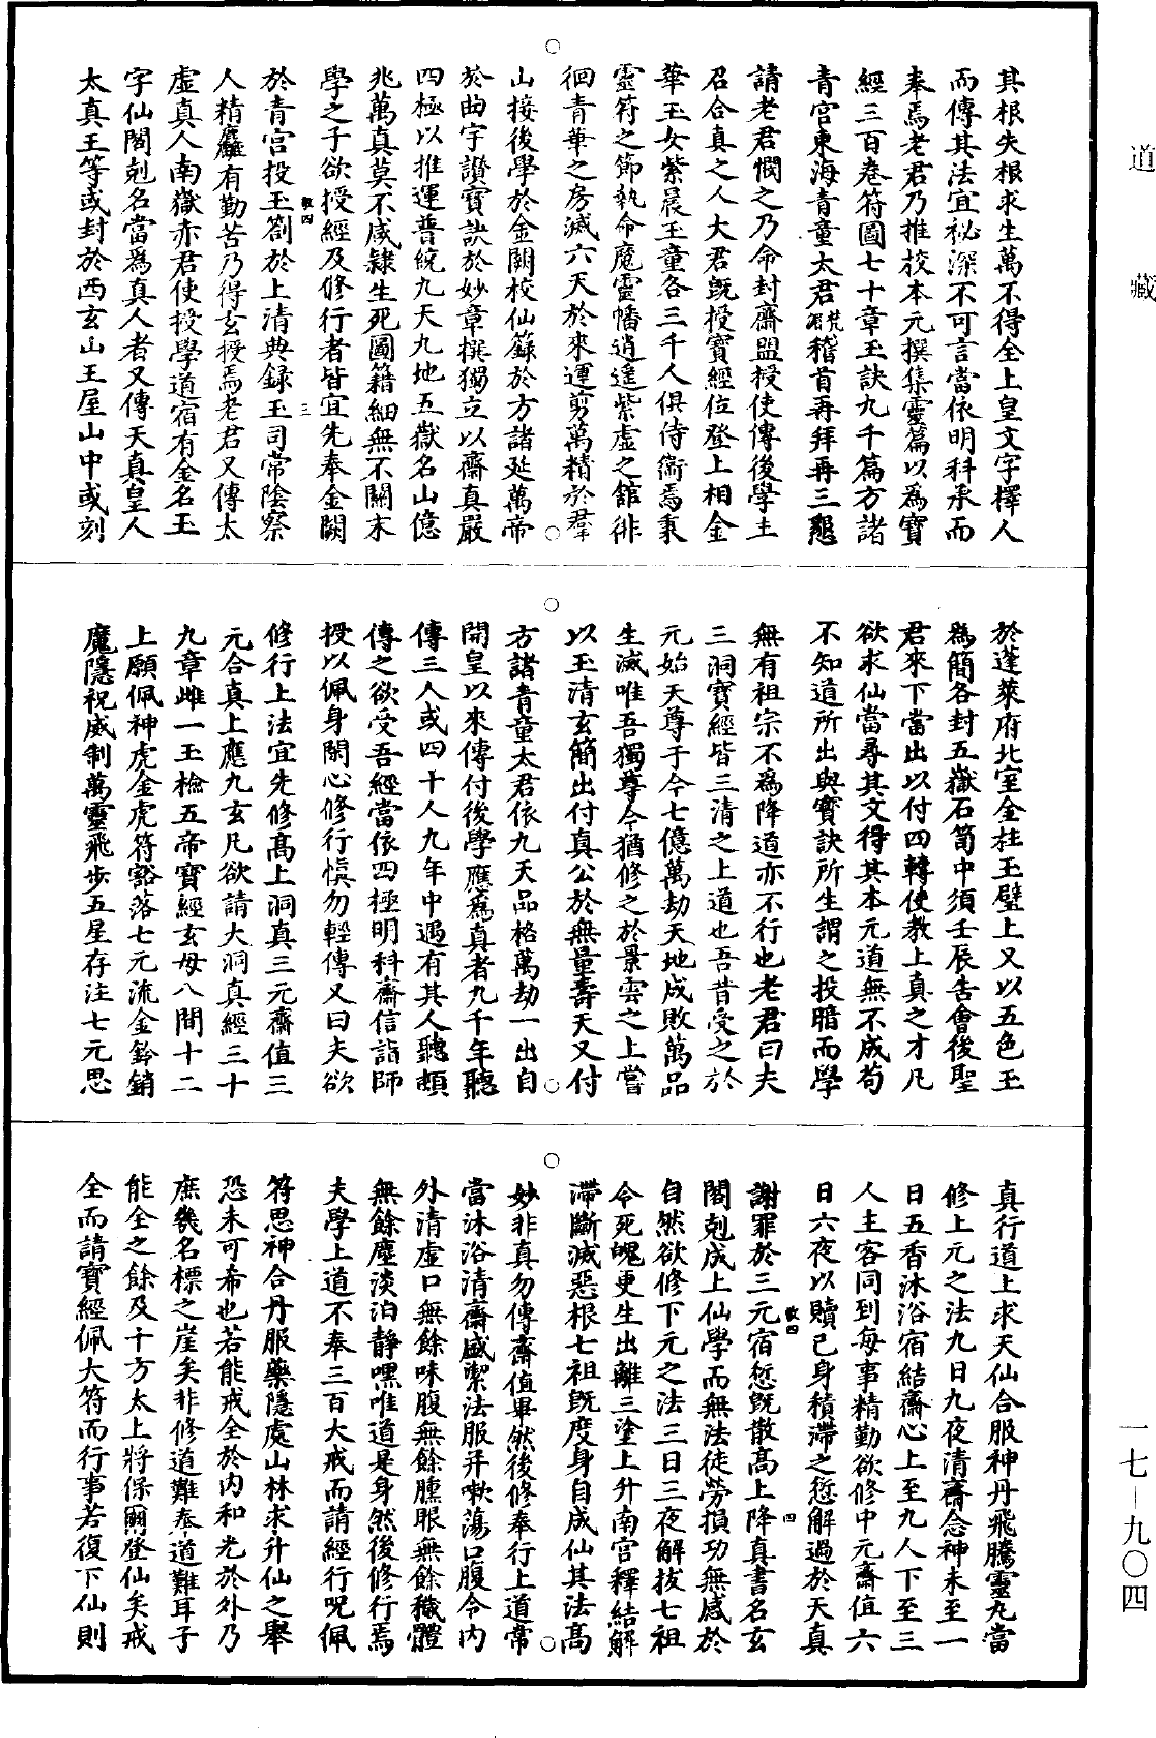 道藏
其根失根求生萬不得全上皇文字擇人
而傳其法宜祕深不可言當依明科承而
奉焉老君乃推校本元撰集靈篇以為寶
經三百卷符圖七十章玉訣九千篇方諸
青宮東海青童太君稽首再拜再三懇
請老君憫之乃命封齋盟授使傳後學土
召合真之人大君既授寶經位登上相金
華玉女紫晨玉童各三千人俱侍衛焉秉
靈符之節執命魔靈幡逍遙紫虛之館徘
徊青華之房滅六天於來運剪萬精於群
山接後學於金闕校仙籙於方諸延萬帝
於曲宇讚寶訣於妙章撰獨立以齋真嚴
四極以推運普統九天九地五嶽名山億
兆萬真莫不咸隸生死圖籍細無不關末
學之子欲授經及修行者皆宜先奉金闕
教四 三
於青宮投玉劄於上清典錄玉司常陰察
人精麤有勤苦乃得玄授焉老君又傳太
虛真人南嶽赤君使授學道宿有金名玉
字仙閣剋名當為真人者又傳天真皇人
太真王等或封於西玄山王屋山中或刻
於蓬萊府北室金柱玉壁上又以五色玉
為簡各封五嶽石笥中須壬辰告會後聖
君來下當出以付四轉使教上真之才凡
欲求仙當尋其文得其本元道無不成苟
不知道所出與寶訣所生謂之投暗而學
無有祖宗不為降道亦不行也老君曰夫
三洞寶經皆三清之上道也吾昔受之於
元始天尊于今七億萬劫天地成敗萬品
生滅唯吾獨尊今猶修之於景雲之上嘗
以玉清玄簡出付真公於無量壽天又付
方諸青童太君依九天品格萬劫一出自
開皇以來傳付後學應為真者九千年聽
傳三人或四十人九年中遇有其人聽頓
傳之欲受吾經當依四極明科齋信詣師
授以佩身閑心修行慎勿輕傳又曰夫欲
修行上法宜先修高上洞真三元齋值三
元合真上應九玄凡欲請大洞真經三十
九章雌一玉檢五帝寶經玄母八間十二
上願佩神虎金虎符豁落七元流金鈴銷
魔隱祝威制萬靈飛步五星存注七元思
真行道上求天仙合服神丹飛騰靈丸當
修上元之法九日九夜清齋念神未至一
日五香沐浴宿結齋心上至九人下至三
人主客同到每事精勤欲修中元齋值六
日六夜以贖己身積滯之愆解過於天真
教四 四
謝罪於三元宿愆既散高上降真書名玄
閣剋成上仙學而無法徒勞損功無感於
自然欲修下元之法三日三夜解拔七祖
令死魄更生出離三塗上升南宮釋結解
滯斷滅惡根七祖既度身自成仙其法高
妙非真勿傳齋值畢然後修奉行上道常
當沐浴清齋盛潔法服并嗽蕩口腹令內
外清虛口無餘味腹無餘臊眼無餘穢體
無餘塵淡泊靜嘿唯道是身然後修行焉
夫學上道不奉三百大戒而請經行呪佩
符思神合丹服藥隱處山林求升仙之舉
恐未可希也若能戒全於內和光於外乃
庶幾名標之崖矣非修道難奉道難耳子
能全之餘及十方太上將保爾登仙矣戒
全而請寶經佩大符而行事若復下仙則
一七—九〇四